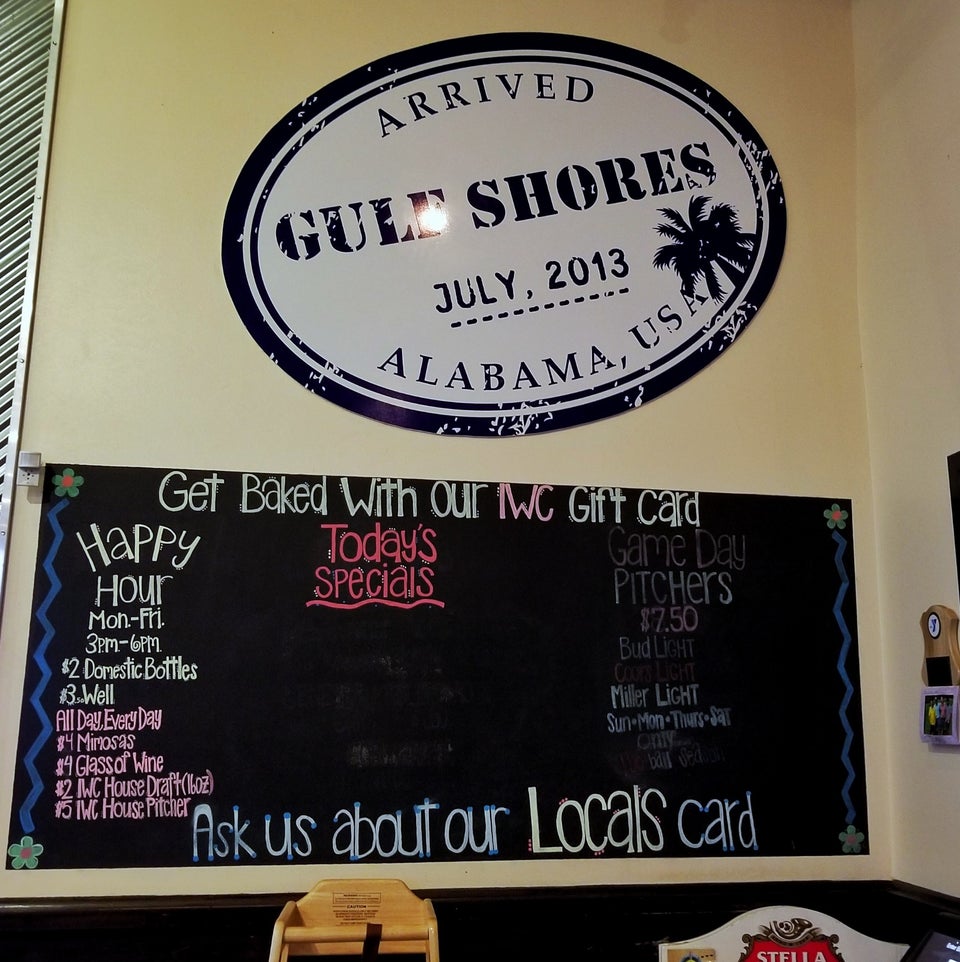 ARRIVED
GULF SHORES
JULY, 2013
ALABAMA, USA
Get Baked With our IWC Gift card
Happy
Hour
Mon.-Fri.
3pm-6pm.
$2 Domestic Bottles
$3.50 Well
All Day, Every Day
$4 Mimosas
$4 Glass of Wine
$2 IWC House Draft (16oz)
$5 IWC House Pitcher
Today's
Specials
Game Day
Pitchers
$7.50
Bud Light
Coors Light
Miller Light
Sun•Mon•Thurs•Sat
only
ball season
Ask us about our Locals card
CAUTION
STELLA